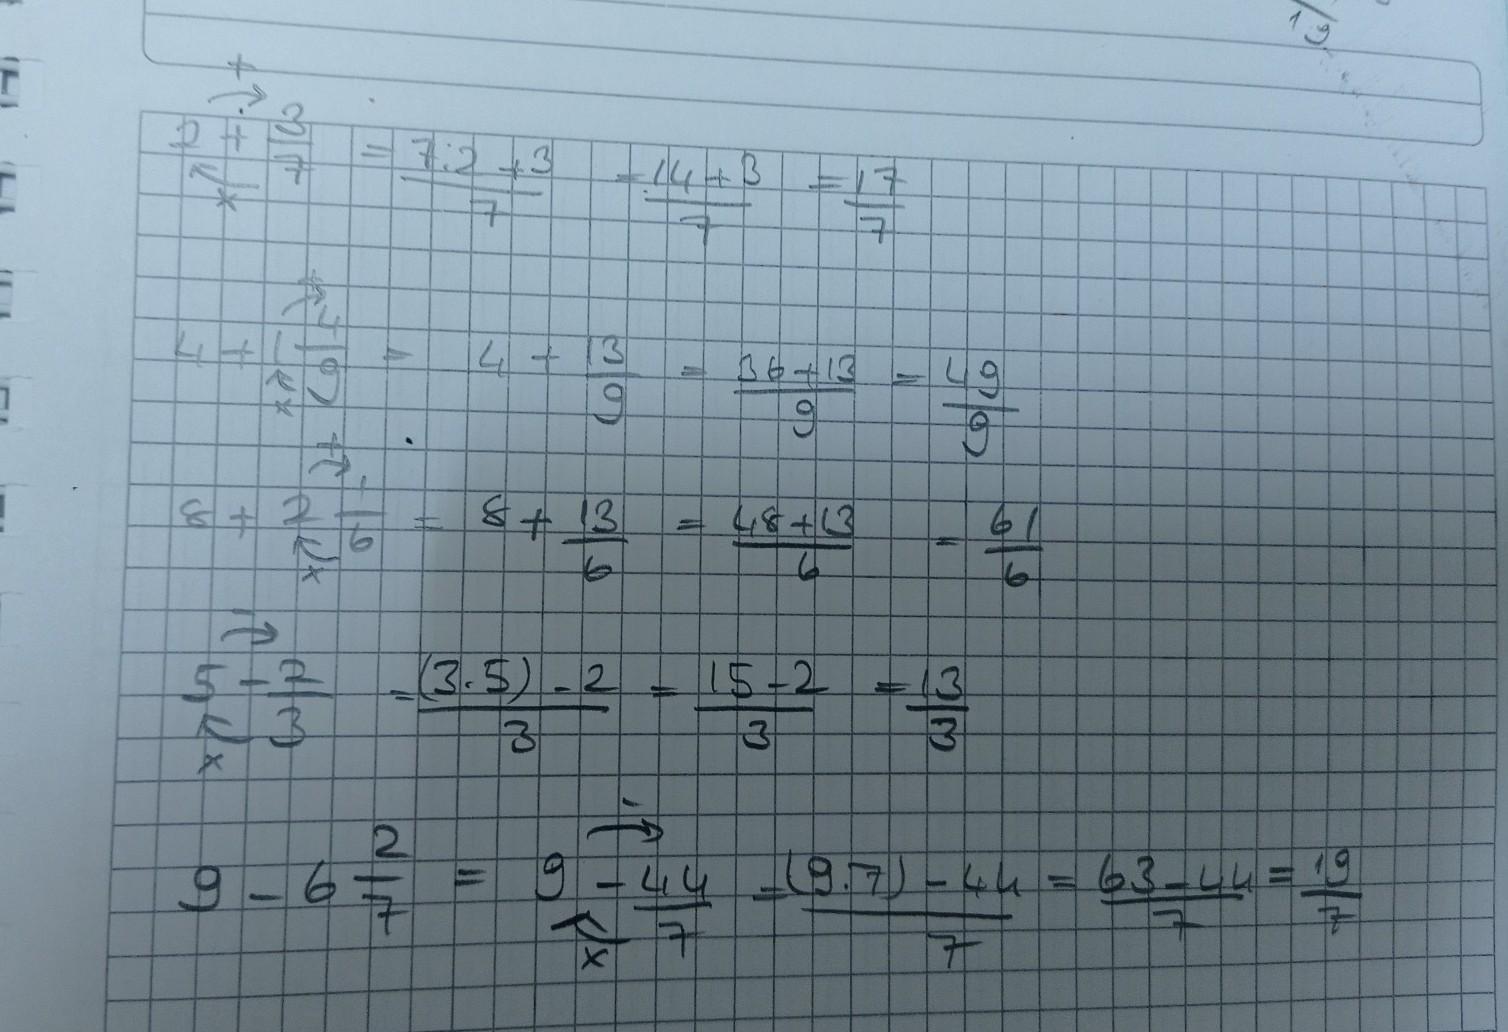 19
+
2 + 3/7 = 7.2 + 3/7 = 14 + 3/7 = 17/7
x
+
4 + 1 4/9 = 4 + 13/9 = 36 + 13/9 = 49/9
x
+
8 + 2 1/6 = 8 + 13/6 = 48 + 13/6 = 61/6
x
-
5 - 2/3 = (3.5) - 2/3 = 15 - 2/3 = 13/3
x
-
9 - 6 2/7 = 9 - 44/7 = (9.7) - 44/7 = 63 - 44/7 = 19/7
x